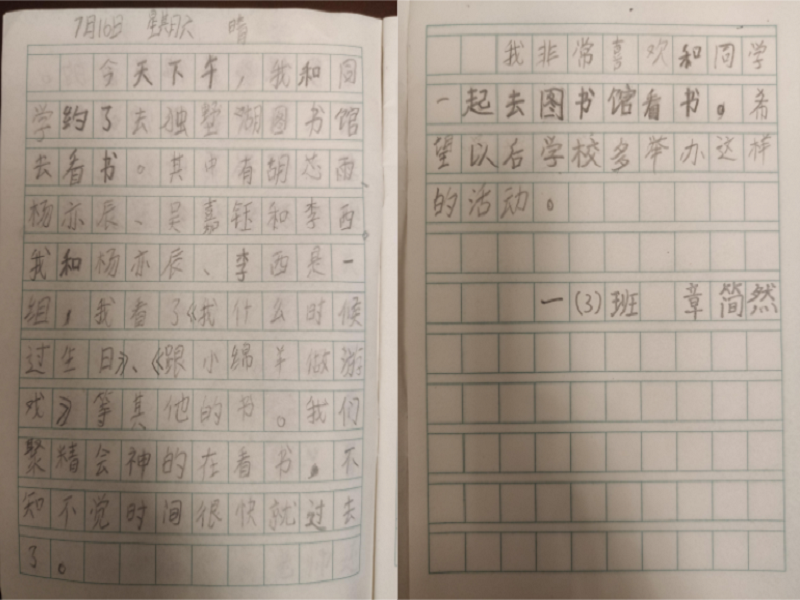 7月16日 星期六 晴
今天下午，我和同
学约了去独墅湖图书馆
去看书。其中有胡芯西、
杨亦辰、吴嘉钰和李西。
我和杨亦辰、李西是一
组，我看了《我什么时候
过生日》、《跟小绵羊做游
戏》等其他的书。我们
聚精会神的在看书，不
知不觉时间很快就过去
了。
我非常喜欢和同学
一起去图书馆看书。希
望以后学校多举办这样
的活动。
一(3)班 章简然